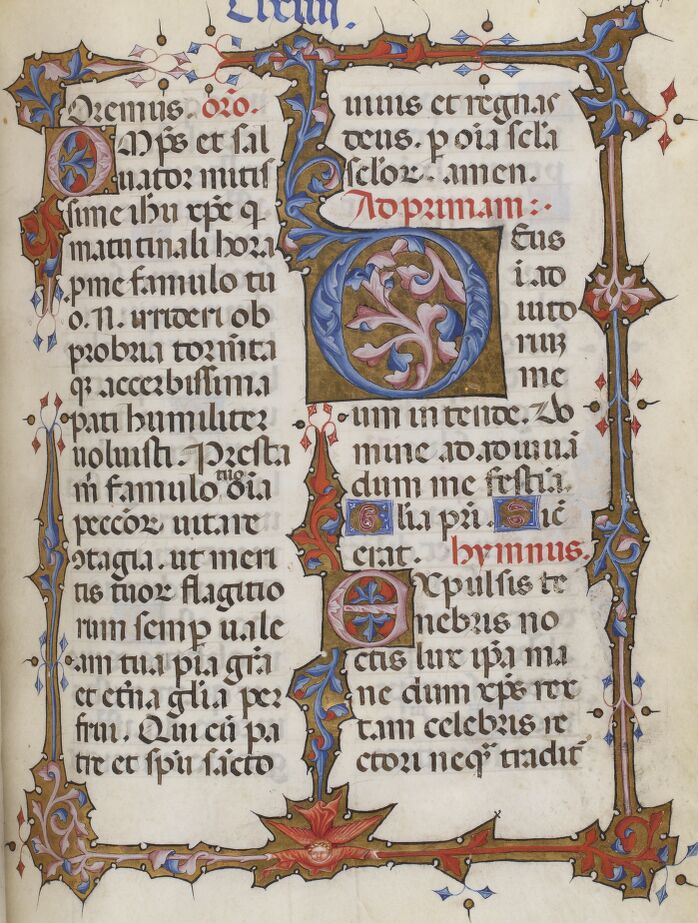 Lxiiii.
Oremus. oro̅.
OMp̅s et sal
uator mitis
sime ihu xp̅e q̅
matutinali hora
pme famulo tu
o. N. irrideri ob
probria torm̅ta
q̅ accerbissima
pati humiliter
uoluisti. Presta
m̅ famulo tuo o̅ia
peccoꝝ uitare
ↄtagia. ut meri
tis tuoꝝ flagitio
rum semp uale
am tua pia gr̅a
et et̅na gl̅ia per
frui. Qui cu̅ pa
tre et sp̅u sa̅cto
uiuis et regnas
deus. p o̅ia sc̅la
sc̅loꝝ. amen.
Ad primam:·
DEus
i̅ ad
iuto
riuz
me
um intende. Do
mine ad adiuua̅
dum me festi̅a.
Gl̅ia p̅ri. Sic̅
erat. hymnus.
EXpulsis te
nebris no
ctis lux ip̅a ma
ne dum xp̅s rex
tam celebris re
ctori neq̅ tradit̅